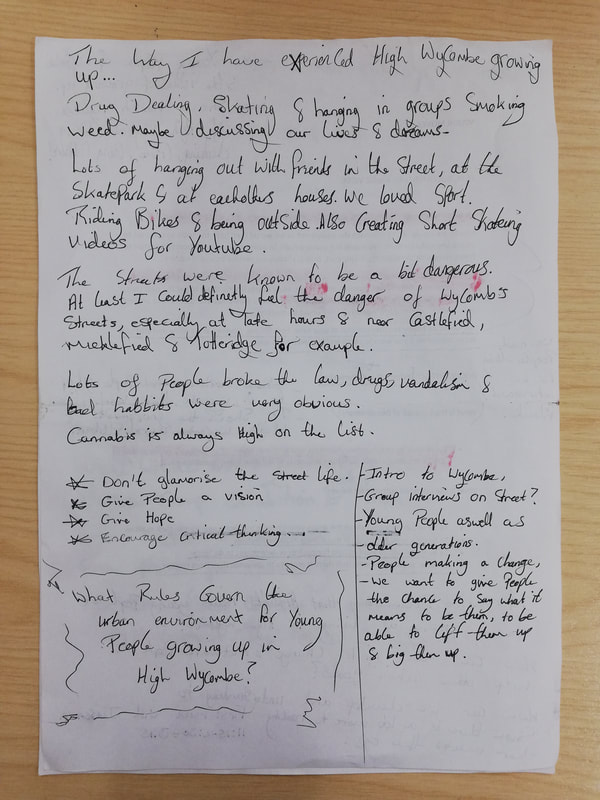 The Way I have experienced High Wycombe growing
up...
Drug Dealing, Skating & hanging in groups Smoking
weed. Maybe discussing our lives & dreams-
Lots of hanging out with friends in the Street, at the
Skatepark & at eachothers houses. We loved Sport.
Riding Bikes & being outside. Also Creating Short Skateing
Videos for Youtube.
The Streets were known to be a bit dangerous.
At least I could definatly feel the danger of Wycomb's
Streets, especially at late hours & near Castlefied,
Micklefied & Totteridge for example.
Lots of People broke the law, drugs, vandalism &
bad habbits were very obvious.
Cannabis is always High on the list.
Don't glamorise the street life.
Give People a vision
Give Hope
Encourage critical thinking...
What Rules Govern the
urban environment for Young
People growing up in
High Wycombe?
- Intro to Wycombe,
- Group interviews on Street?
- Young People aswell as
- older generations.
- People making a change,
- We want to give People
the chance to Say what it
means to be them, to be
able to lift them up
& big them up.